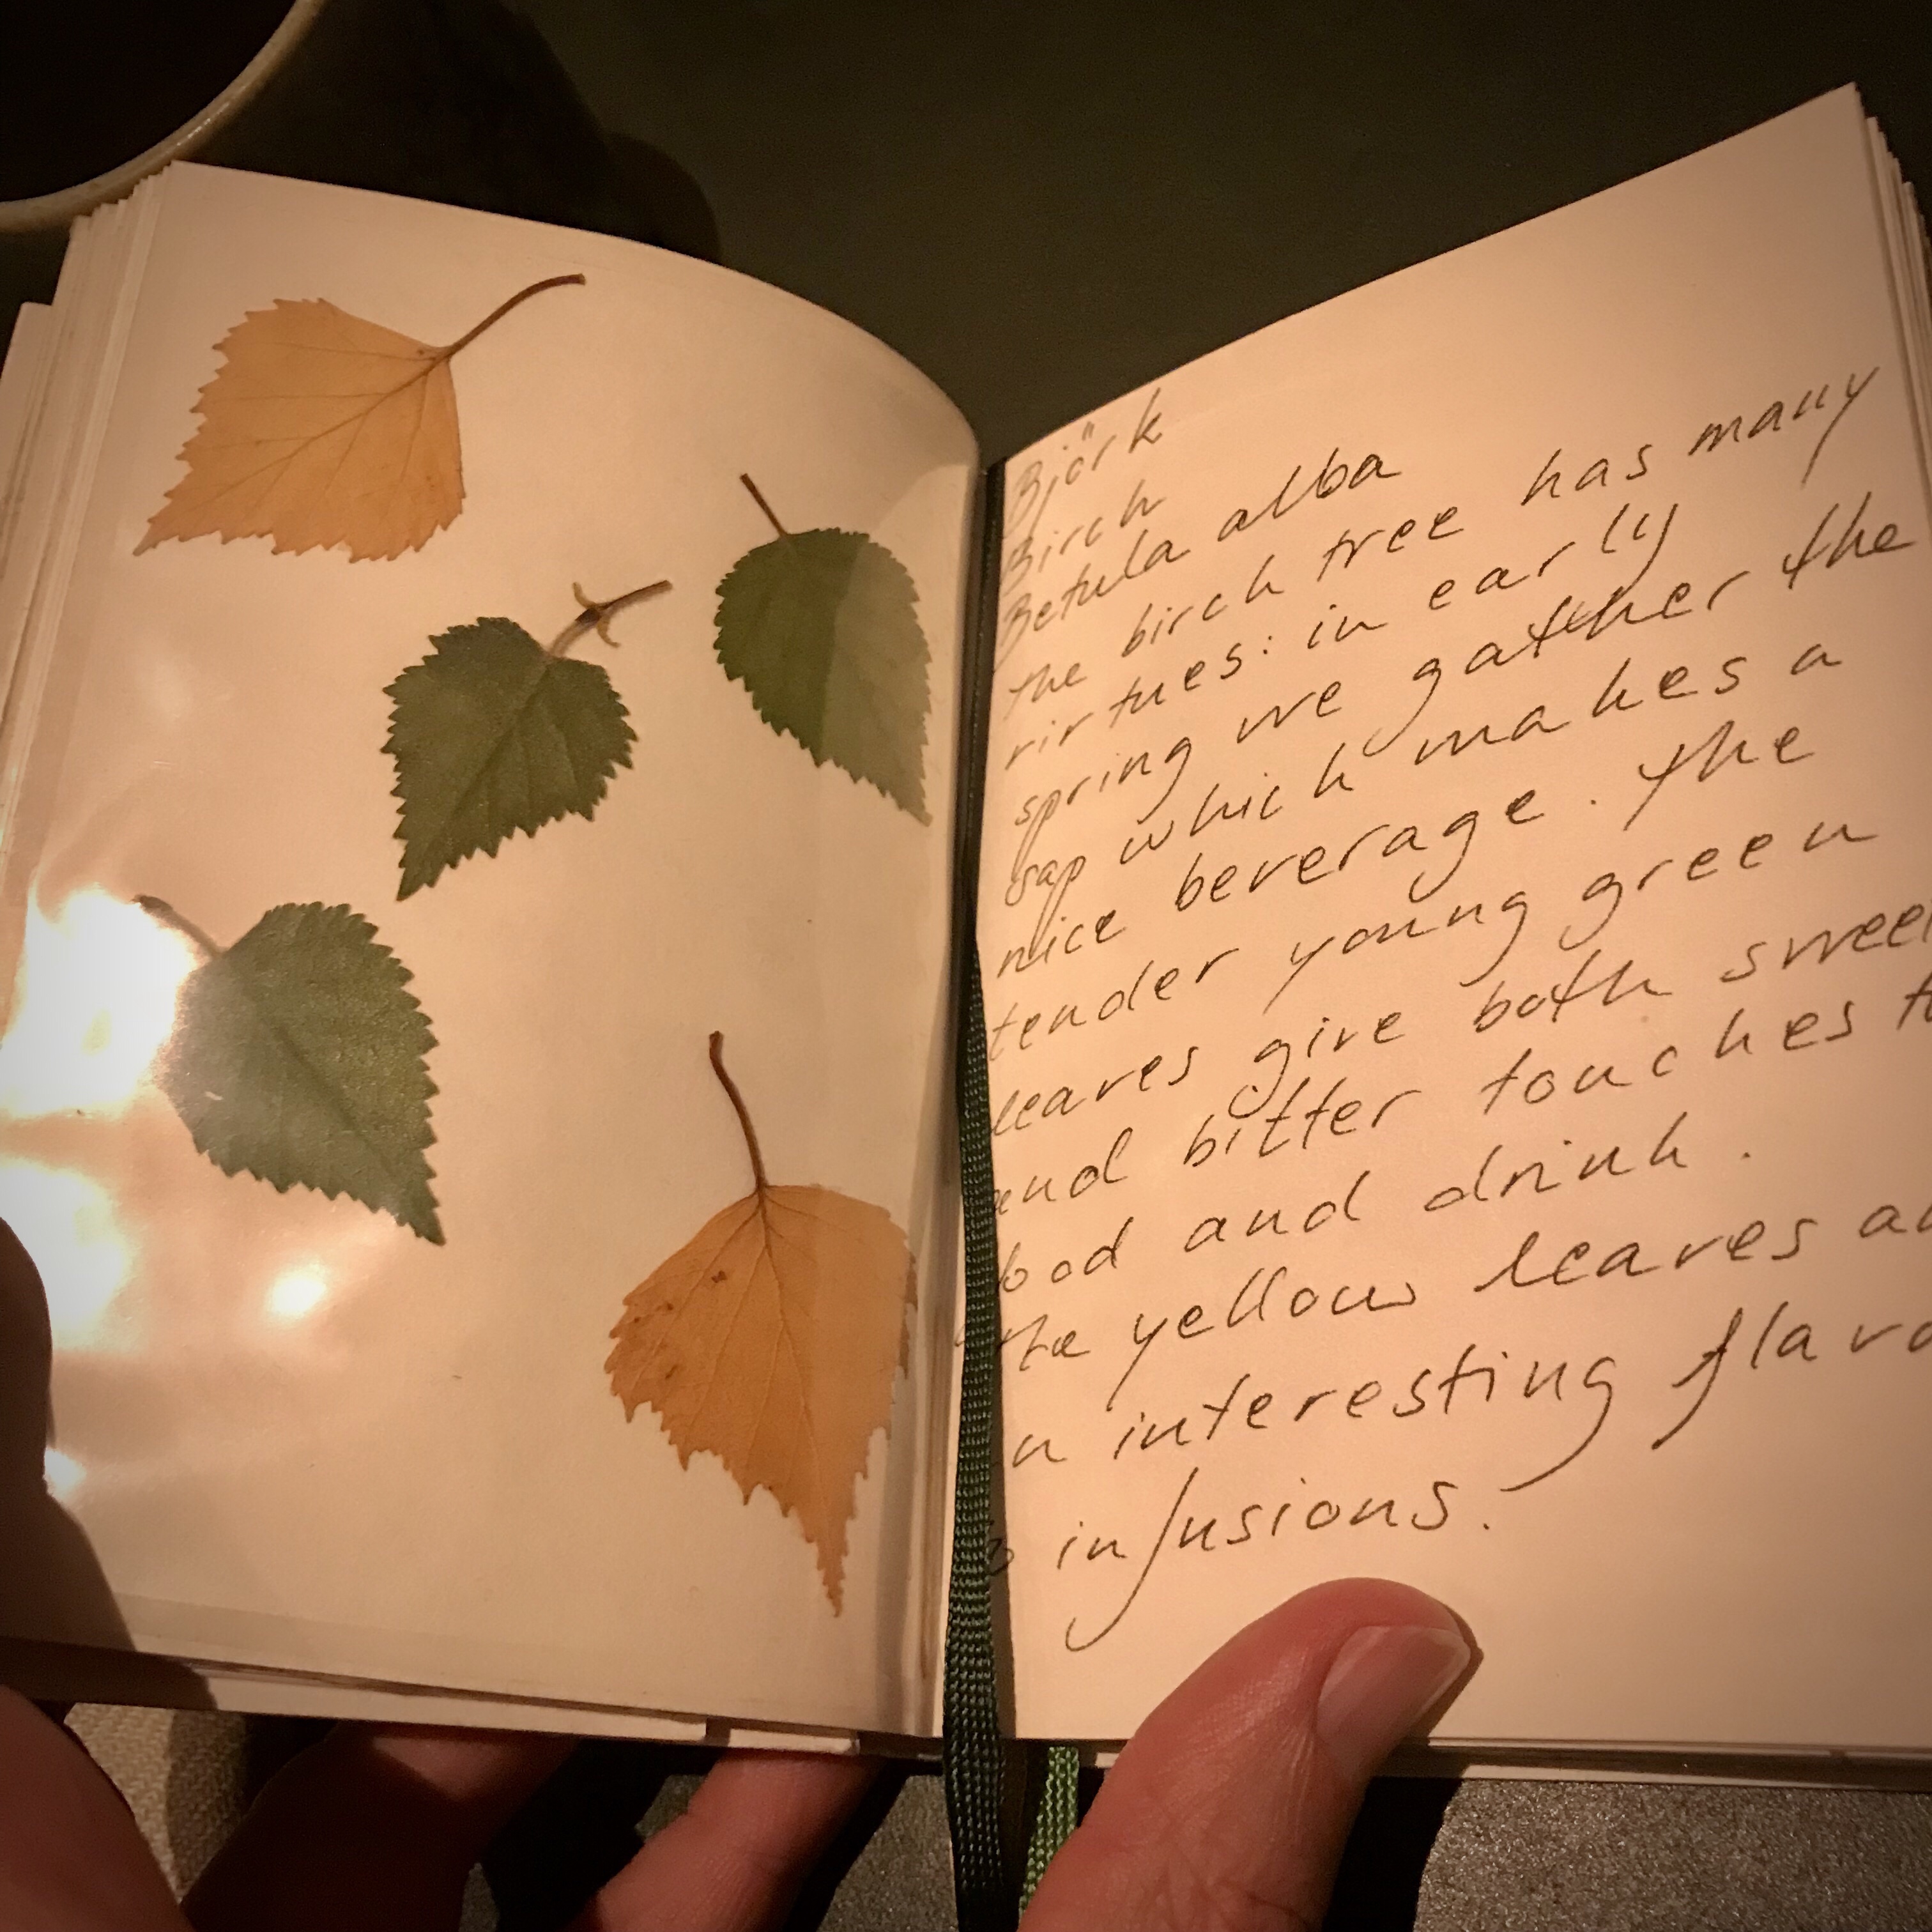 Björk
Birch
Betula alba
The birch tree has many
virtues: in early
spring we gather the
sap which makes a
nice beverage. The
tender young green
leaves give both sweet
and bitter touches
food and drink.
The yellow leaves
interesting
infusions.